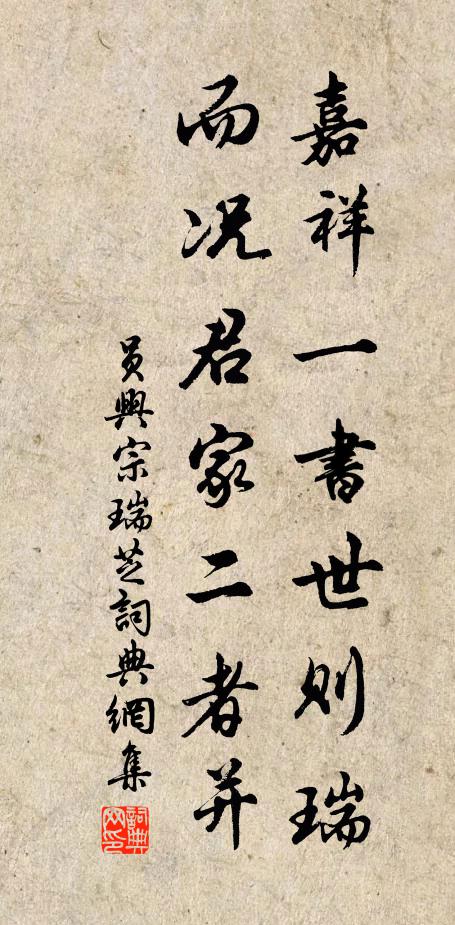 嘉祥一書世則瑞
而况君家二者并
員興宗瑞芝詞典網集
詞典网印